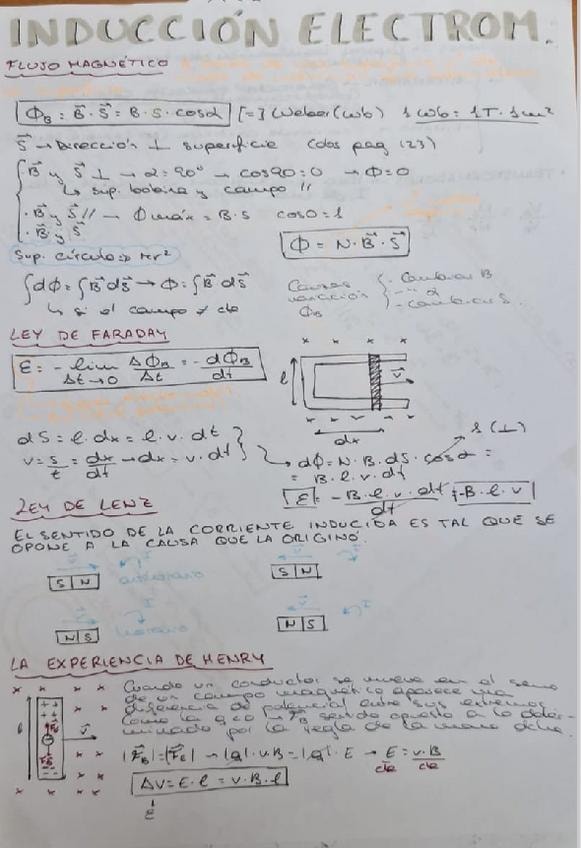 INDUCCIÓN ELECTROM.
FLUJO MAGNÉTICO
Φ_B = B⃗ · S⃗ = B · S · cosα [=] Weber (Wb) 1 Wb = 1T · 1m²
S⃗ → Dirección ⊥ superficie (dos pag 123)
· B⃗ y S⃗ ⊥ → α = 90° → cos90 = 0 → Φ = 0
↳ sup. bobina y campo //
· B⃗ y S⃗ // → Φ máx = B · S cos0 = 1
· B⃗ y S⃗
Φ = N · B⃗ · S⃗
Sup. círculo ⇒ πr²
∫dΦ = ∫B⃗ dS⃗ → Φ = ∫B⃗ dS⃗
↳ si el campo ≠ cte
Causas variación Φ_B
· Cambiar B
- " α
- cambiar S.
LEY DE FARADAY
ε = - lim Δt→0 ΔΦ_B/Δt = - dΦ_B/dt
l
v⃗
dx
dS = l · dx = l · v · dt
v = s/t = dx/dt → dx = v · dt
1 (⊥)
dΦ = N · B · dS · cosα =
= B · l · v · dt
ε = - B · l · v · dt / dt = -B · l · v
LEY DE LENZ
EL SENTIDO DE LA CORRIENTE INDUCIDA ES TAL QUE SE
OPONE A LA CAUSA QUE LA ORIGINÓ.
v⃗ I
S N antihorario
v⃗ I
S N
v⃗ I
N S horario
v⃗ I
N S
LA EXPERIENCIA DE HENRY
Cuando un conductor se mueve en el seno
de un campo magnético aparece una
diferencia de potencial entre sus extremos
Como la q<0 → F⃗_B sentido opuesto a lo deter-
minado por la regla de la mano dcha.
l
v⃗
|F⃗_B| = |F⃗_E| → |q| · v · B = |q| · E → E = v · B
cte cte
ΔV = E · l = v · B · l
ε